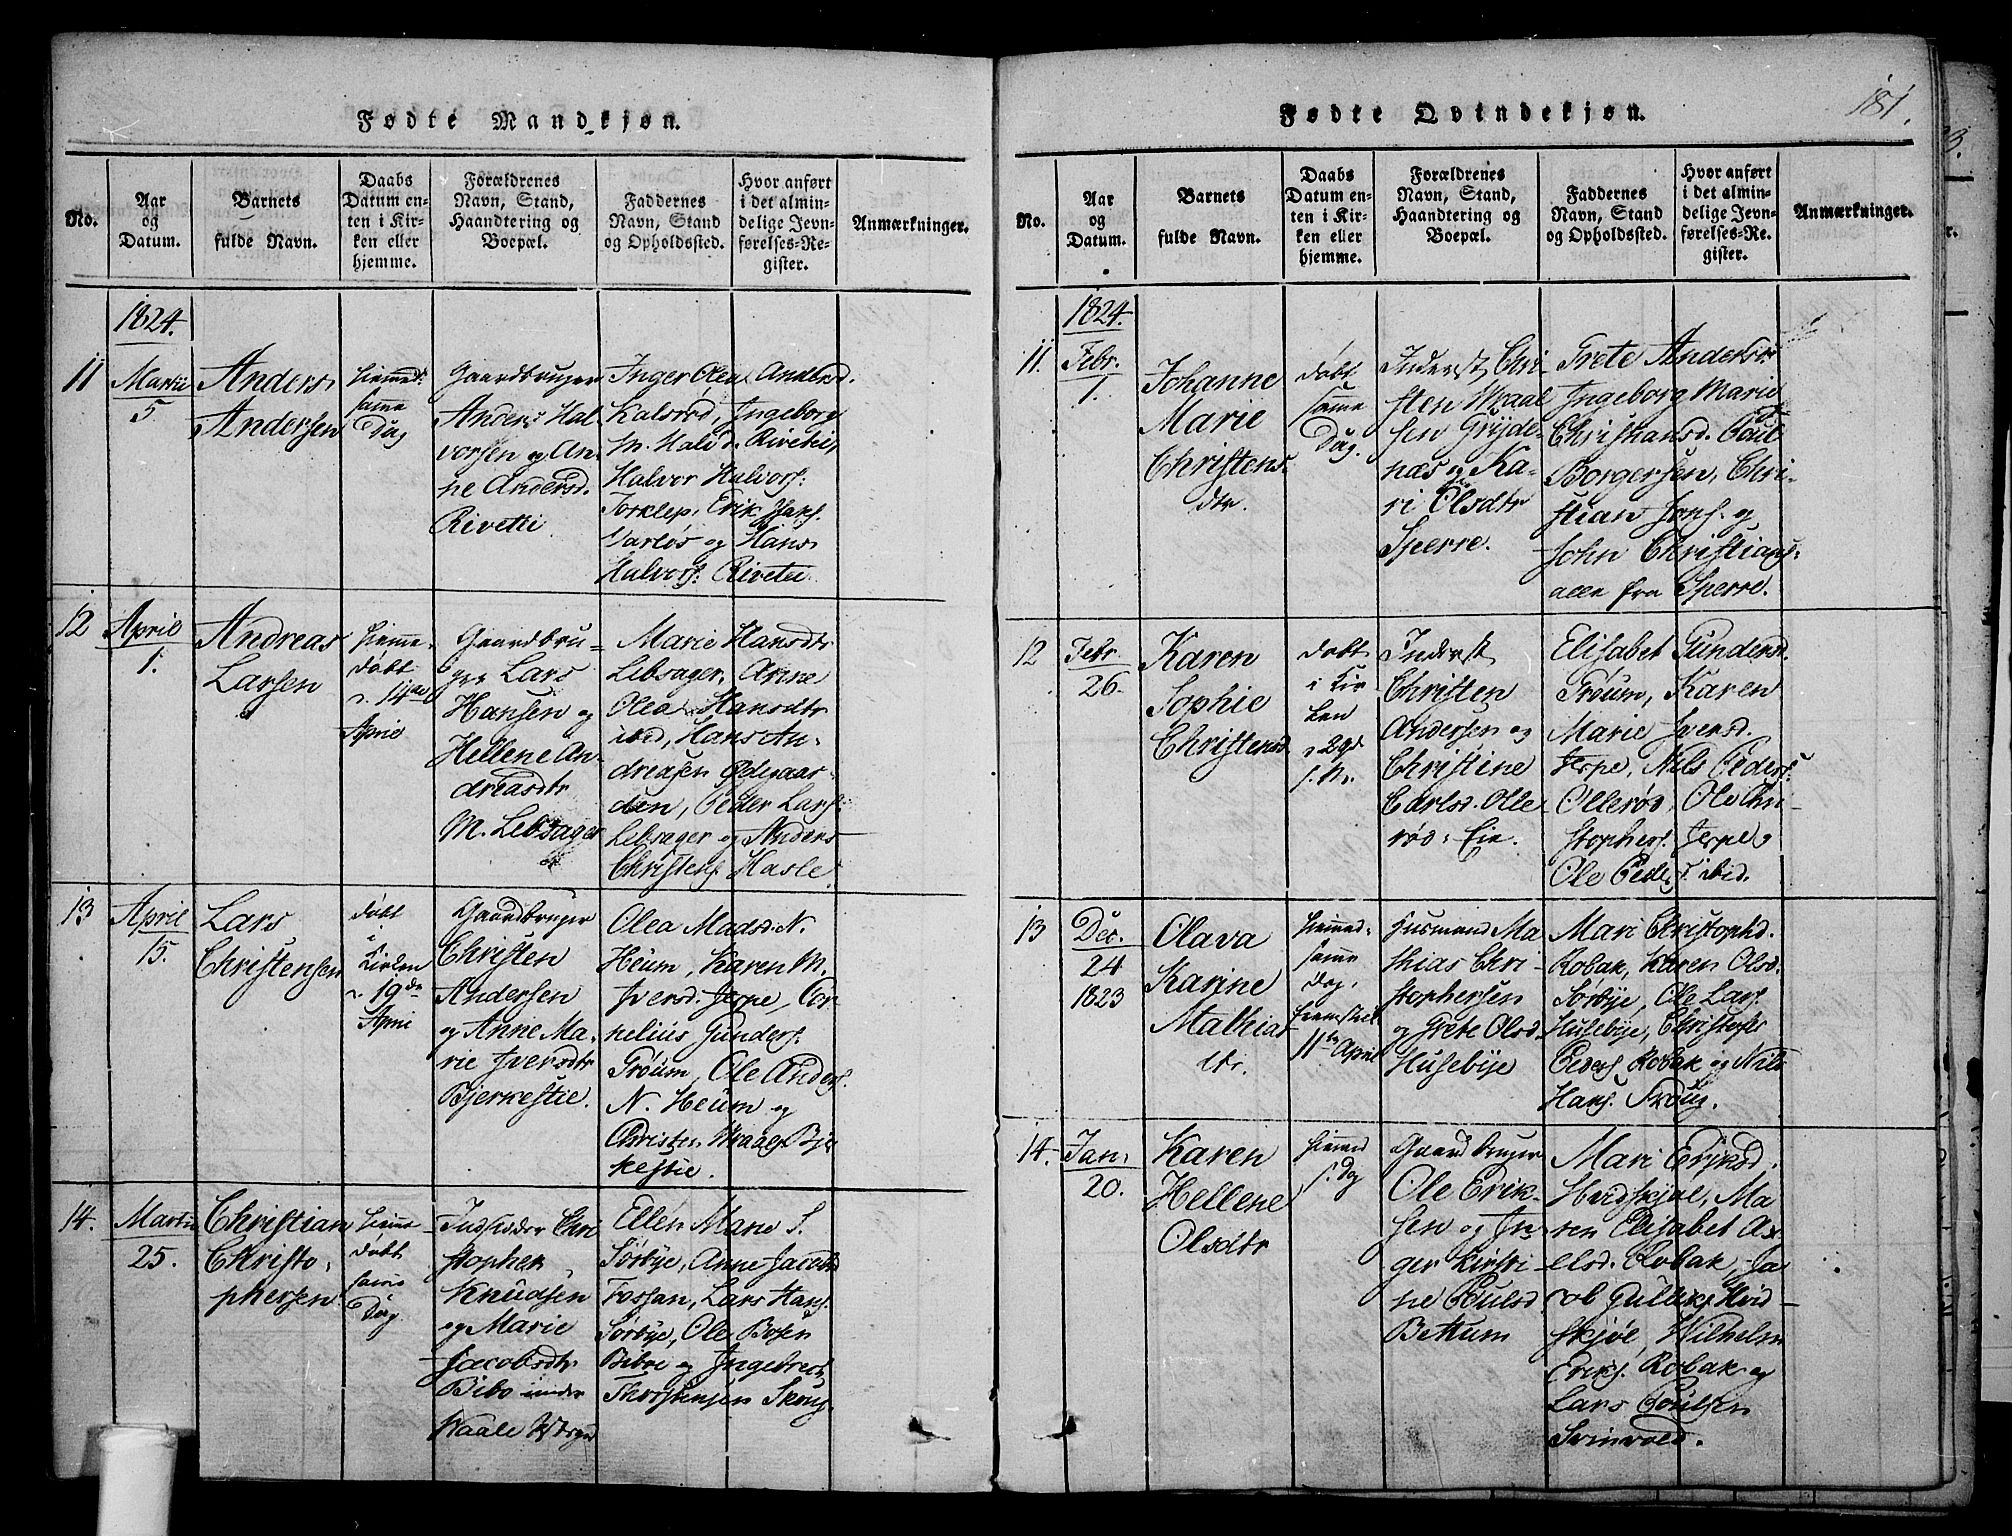 Fødte Mandkjøn.
No.
Aar
og
Datum.
Barnets
fulde Navn.
Daabs
Datum en-
ten i Kir-
ken eller
hjemme.
Forældrenes
Navn, Stand,
Haandtering og
Boepæl.
Faddernes
Navn, Stand
og Opholdssted.
Hvor anført
i det almin-
delige Jevn-
førelses-Re-
gister.
Anmærkninger.
1824.
11
Martii
5
Anders
Andersen
hiemmed.
samme
Dag
Gaardbruger
Anders Hal-
vorsen og An-
ne Andersd.
Rivetii
Inger Olea Andersd.
Kalsrød, Ingeborg
M. Halvd. Rivetii,
Halvor Halvors:
Torklep, Erik Jans.
Varløs og Hans
Halvors: Rivetii
12
April
1.
Andreas
Larsen
hiemme-
døbt
14de
April
Gaardbru-
ger Lars
Hansen og
Hellene An-
dreasdtr
M. Lebsager
Marie Hansdtr
Lebsager, Anne
Olea Hansdtr
ibid, Hans An-
dreasen Ødegaar-
den, Peder Lars:
Lebsager og Anders
Christens. Hasle
13
April
15.
Lars
Christensen
døbt
i
Kirken
19de
April
Gaardbruger
Christen
Andersen
og Anne Ma-
rie Iversdtr
Bjerkestie.
Olea Madsd. N.
Heum, Karen M.
Iversd. Jerpe, Cor-
nelius Gunders.
Trøum, Ole Anders.
N. Heum og
Christen Wraals. Bjer
kestie.
14.
Martii
25.
Christian
Christo-
phersen
hieme
døbt
same
Dag
Indsidder Chri
stopher
Knudsen
og Marie
Jacobsdtr
Bibo under
Waale
Ellen Marie S.
Sørbye, Anne Jacobsd
Fossan, Lars Hans.
Sørbye, Ole Bosen
Biboe og Ingebret
Thorstensen Skoug.
Fødte Qvindekjøn.
181.
No.
Aar
og
Datum.
Barnets
fulde Navn.
Daabs
Datum en-
ten i Kir-
ken eller
hjemme.
Forældrenes
Navn, Stand,
Haandtering og
Boepæl.
Faddernes
Navn, Stand
og Opholdssted.
Hvor anført
i det almin-
delige Jevn-
førelses-Re-
gister.
Anmærkninger.
1824.
11.
Febr.
1.
Johanne
Marie
Christens
dtr.
døbt
samme
Dag.
Inderst Chri-
sten Wraal
sen Grijde-
næs og Ka-
ri Olsdtr
Sperre.
Grete Andersdr
Ingeborg Marie
Christiansd. Poul
Borgersen, Chri-
stian Jons. og
John Christians:
alle fra Sperre.
12
Febr.
26.
Karen
Sophie
Christensd
døbt
i Kir
ken
29d
s. M.
Inderst
Christen
Andersen og
Christine
Carlsd. Olle
rød: Eie.
Elisabet Gundersd.
Trøum, Karen
Marie Iversd.
Jerpe, Niels Peders.
Ollerød, Ole Chri-
stophers. Jerpe,
Ole Peders. ibid.
13
Dec.
24
1823
Olava
Karine
Mathias
dtr.
hiemed.
samme
Dag,
fremstilt
11te April
Husmand Ma
thias Chri-
stophersen
og Grete Olsd.
Husebije
Mari Christophd.
Robak, Karen Olsd.
Sørbye, Ole Lars.
Husebije, Christopher
Peders. Robak og Nils
Hans. Troug.
14.
Jan.
20.
Karen
Hellene
Olsdtr
hiemed
s. Dg
Gaardbruger
Ole Erik-
sen og In-
ger Kirsti-
ne Poulsd
Bettum
Mari Eriksd.
Hvidskjøl, Ma
ren Elisabet Ax-
elsd. Robak, Ja
cob Gulliks. Hvid-
skjøl, Wilhelm
Eriks. Robak og
Lars Poulsen
Svinvold.